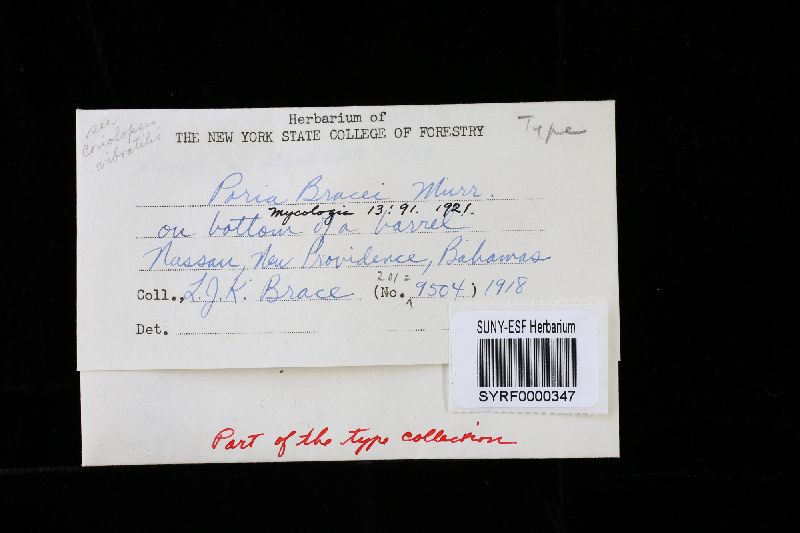 see
Coriolopsis
vibratilis
Herbarium of
THE NEW YORK STATE COLLEGE OF FORESTRY
Type
Poria Bracei Murr.
Mycologia 13:91. 1921.
on bottom of a barrel
Nassau, New Providence, Bahamas
201=
Coll., L.J.K. Brace (No. 9504) 1918
Det.
SUNY-ESF Herbarium
SYRF0000347
Part of the type collection